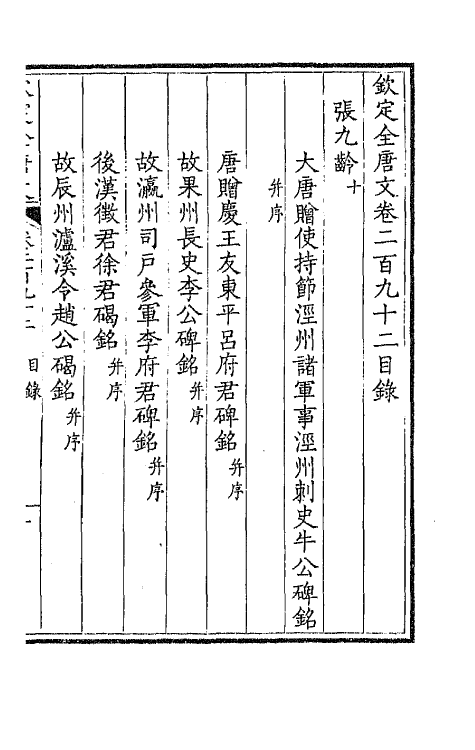 欽定全唐文卷二百九十二目錄
張九齡十
大唐贈使持節涇州諸軍事涇州刺史牛公碑銘
并序
唐贈慶王友東平呂府君碑銘并序
故果州長史李公碑銘并序
故瀛州司戶參軍李府君碑銘并序
後漢徵君徐君碣銘并序
故辰州瀘溪令趙公碣銘并序
目錄
一